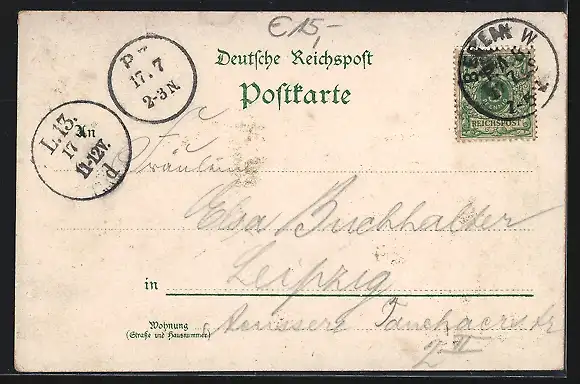 € 15,-
Deutsche Reichspost
Postkarte
BERLIN W
REICHSPOST
P
17.7
2-3N.
L.13.
17
11-12V.
d
An
Fräulein
Elsa Buchhalter
in Leipzig
Wohnung
(Straße und Hausnummer)
Aeussere Tauchaerstr
2 II